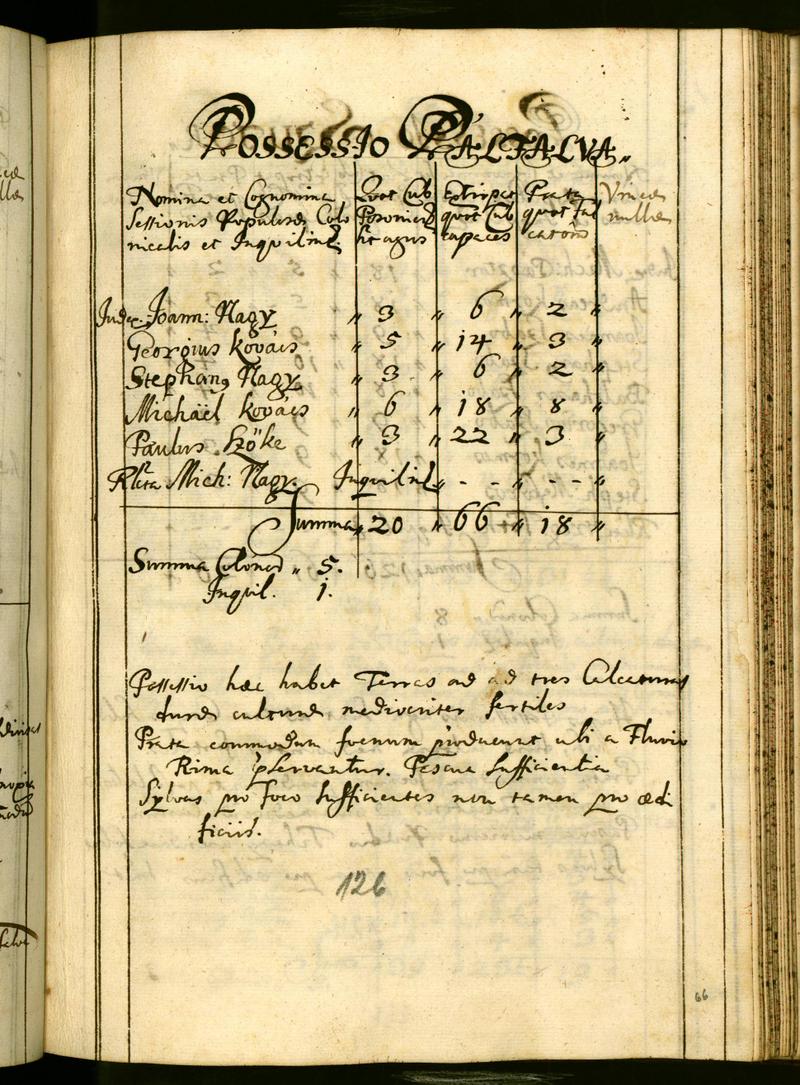 POSSESSIO PÁLFALVA.
Nomina et Cognomina Quot Cub Extirpat Prata Vineæ
Sessionis Populosæ Colo Posonien quot Cub quot fal nullæ
nicalis et Inquilin hic agus capaces catoru
Judex Joann: Nagy „ 3 „ 6 „ 2 „
Georgius Kovács „ 5 „ 14 „ 3 „
Stephang Nagy „ 3 „ 6 „ 2 „
Michäel Kovács „ 6 „ 18 „ 8 „
Paulus Szöke „ 3 „ 22 „ 3 „
Rlta Mich: Nagy. Inquilin „ - - „ - - „
Summa „ 20 „ 66 „ 18 „
Summa Colonor „ 5.
Inquil. 1.
Possessio hæc habet Terras ad ad tres Calcaturas
duræ culturæ mediocriter fertiles
Prata commodum foenum producunt ubi a Fluvio
Rima pservantur. Pascua sufficientia
Sylvas pro foco sufficientes non tamen pro ædi
ficiis.
126
66